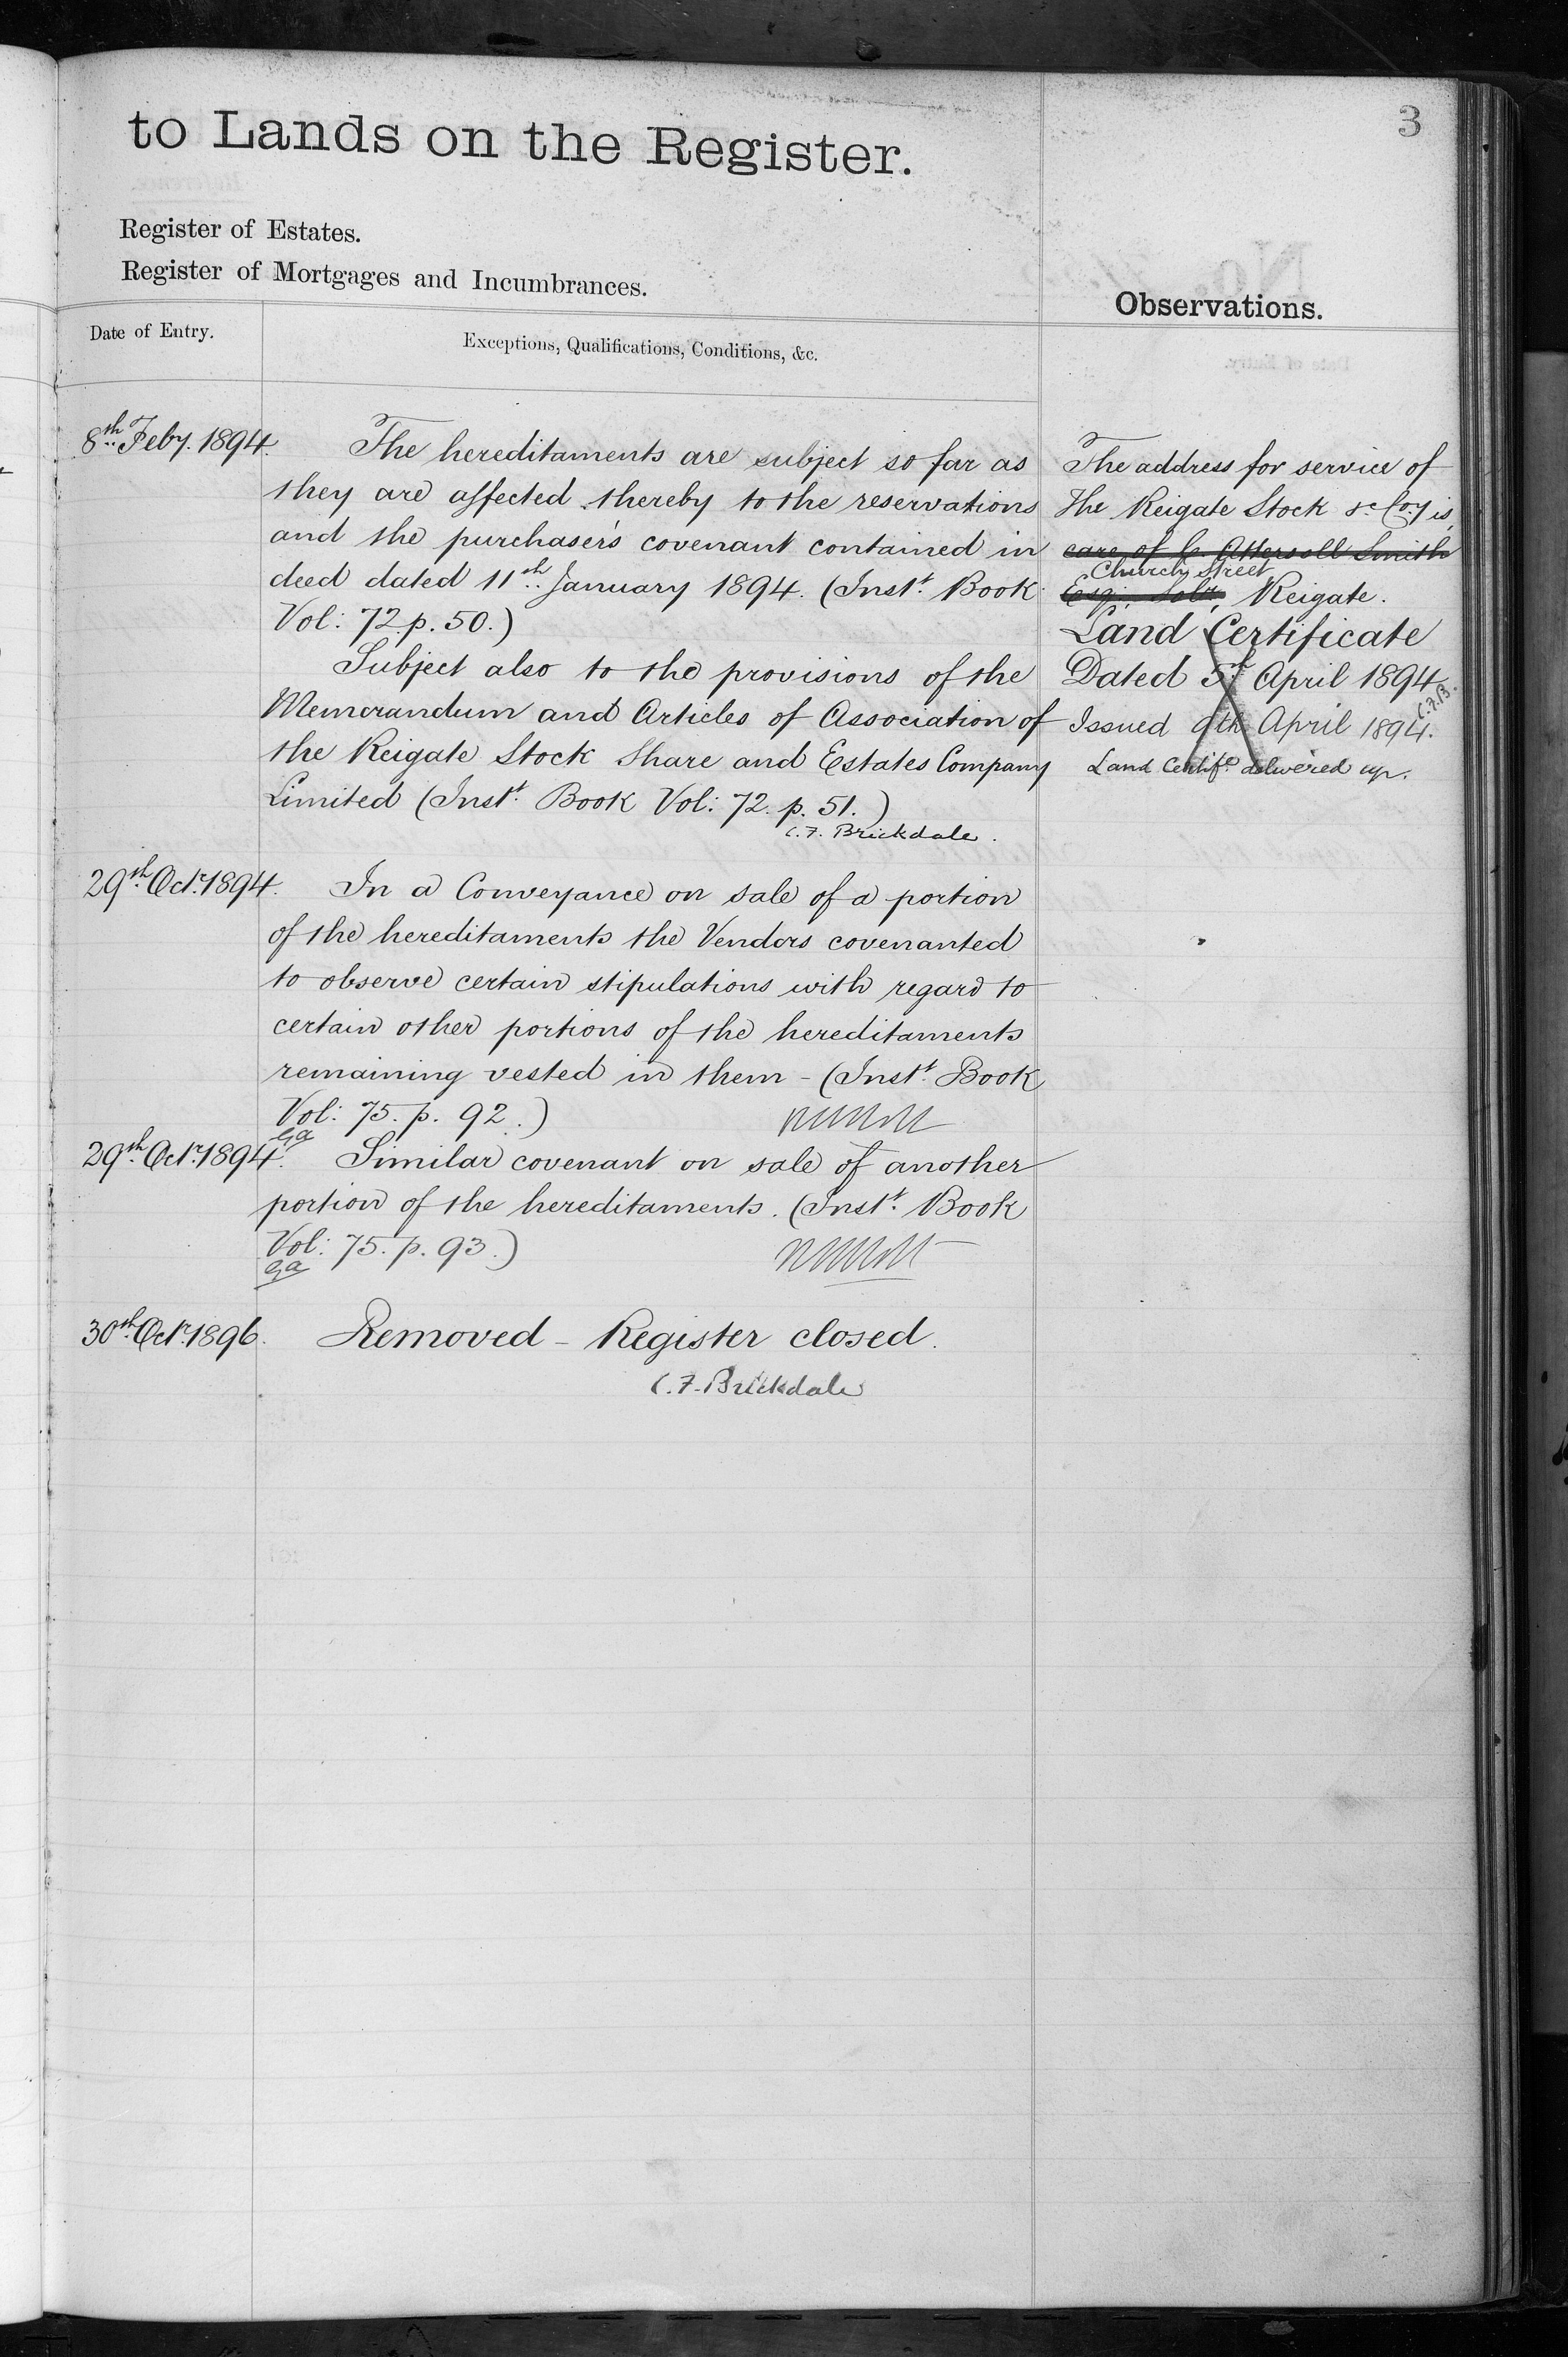 3
to Lands on the Register.
Register of Estates.
Register of Mortgages and Incumbrances.
Observations.
Date of Entry.
Exceptions, Qualifications, Conditions, &c.
8th Feby. 1894.
The hereditaments are subject so far as
they are affected thereby to the reservations
and the purchaser's covenant contained in
deed dated 11th January 1894. (Instt. Book
Vol: 72 p. 50.)
Subject also to the provisions of the
Memorandum and Articles of Association of
the Reigate Stock Share and Estates Company
Limited (Instt. Book Vol: 72. p. 51.)
C. F. Brickdale.
29th Octr. 1894.
In a Conveyance on sale of a portion
of the hereditaments the Vendors covenanted
to observe certain stipulations with regard to
certain other portions of the hereditaments
remaining vested in them - (Instt. Book
Vol: 75. p. 92.)
29th Octr. 1894.
Similar covenant on sale of another
portion of the hereditaments. (Instt. Book
Vol: 75. p. 93.)
30th Octr. 1896.
Removed - Register closed.
C. F. Brickdale
The address for service of
The Reigate Stock &c Coy is
care of C. Attersoll Smith
Church Street
Esq. Solr, Reigate.
Land Certificate
Dated 5th April 1894
C.F.B.
Issued 9th April 1894.
Land Certife delivered up.